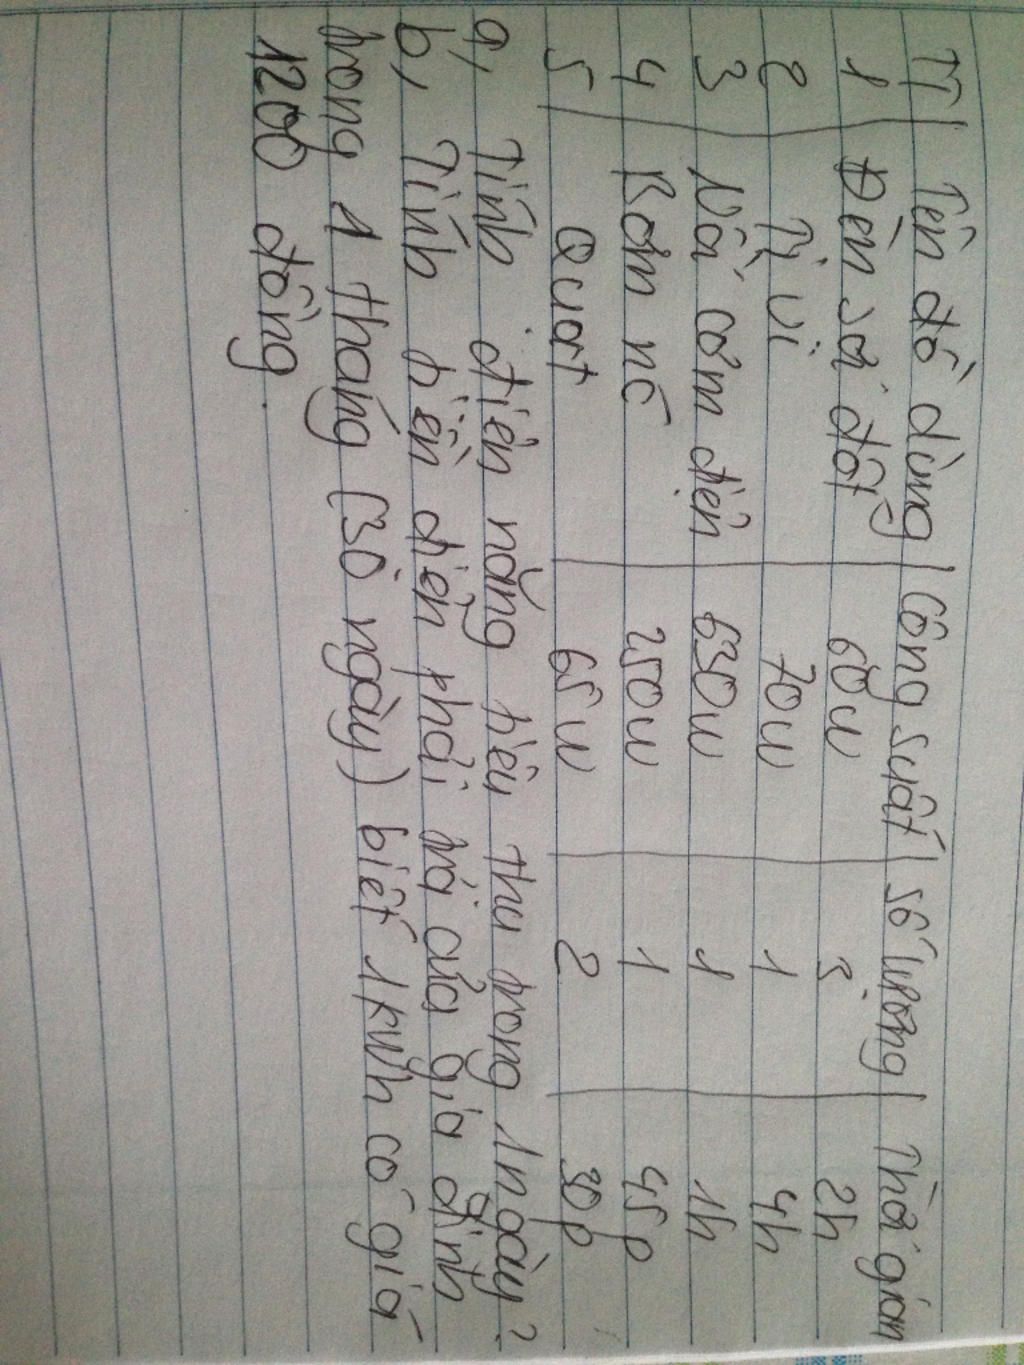 TT Tên đồ dùng Công suất Số lượng Thời gian
1 Đèn sợi đốt 60W 3 2h
2 Ti vi 70W 1 4h
3 Nồi cơm điện 630W 1 1h
4 Bơm nc 250W 1 45p
5 Quạt 65W 2 30p
a, Tính điện năng tiêu thụ trong 1 ngày?
b, Tính tiền điện phải trả của gia đình
trong 1 tháng (30 ngày) biết 1kWh có giá
1200 đồng.